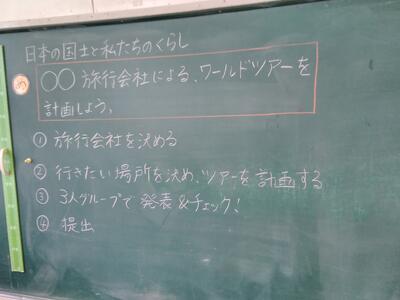 日本の国土と私たちのくらし
め
○○ 旅行会社による、ワールドツアーを
計画しよう。
① 旅行会社を決める
② 行きたい場所を決め、ツアーを計画する
③ 3人グループで発表&チェック!
④ 提出